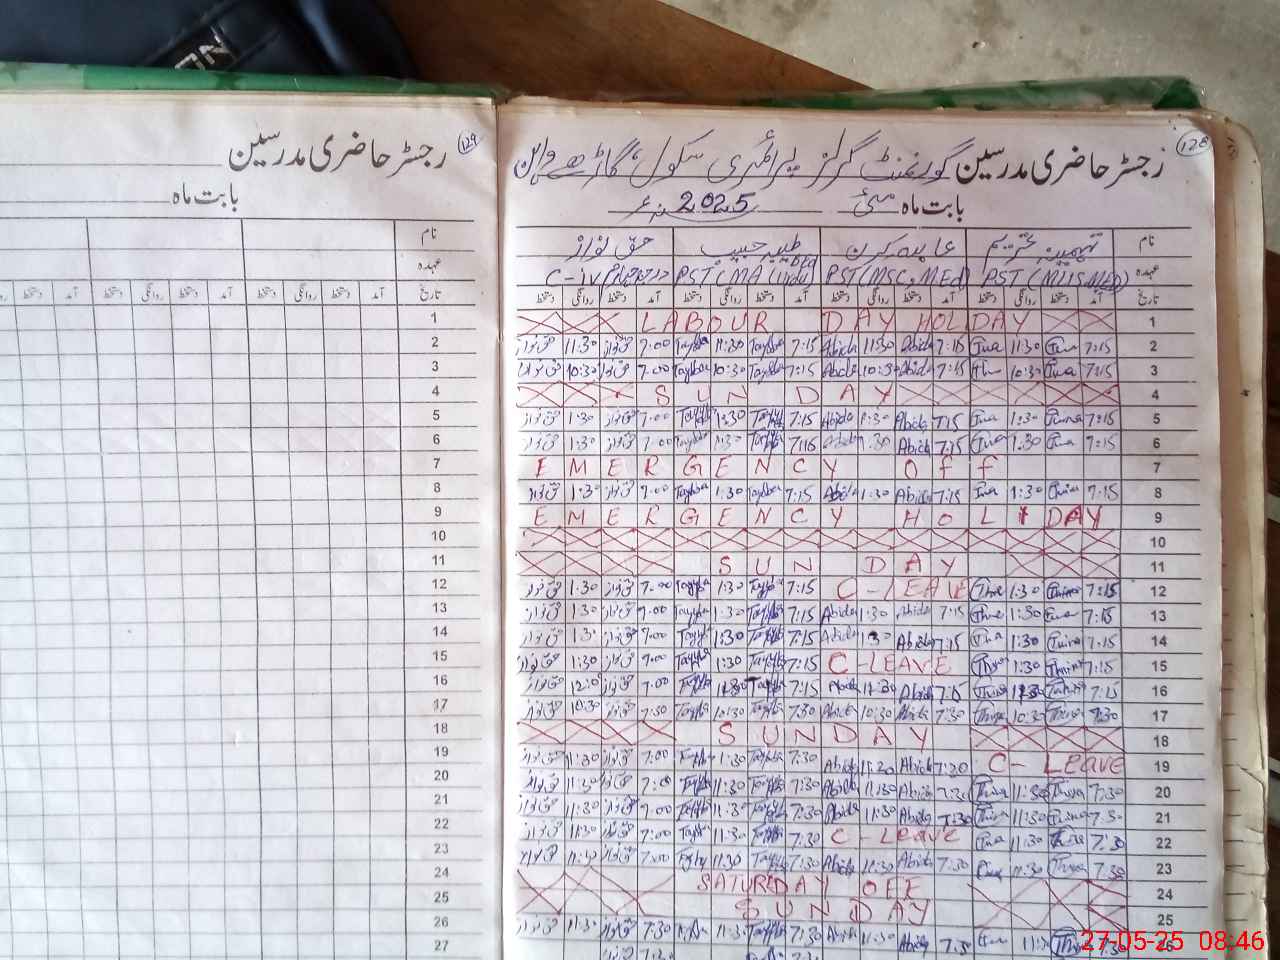 رجسٹر حاضری مدرسین 129
بابت ماہ
نام
عہدہ
تاریخ آمد دستخط روانگی دستخط آمد دستخط روانگی دستخط آمد
1
2
3
4
5
6
7
8
9
10
11
12
13
14
15
16
17
18
19
20
21
22
23
24
25
26
27
رجسٹر حاضری مدرسین گورنمنٹ گرلز پرائمری سکول 128
بابت ماہ مئی 2025ء
نام تہمینہ تحریم عابدہ کرن طیبہ حبیب حق نواز
عہدہ PST (MSc, MEd) PST (MA (Urdu) BEd) درجہ چہارم C-IV
تاریخ آمد دستخط روانگی دستخط آمد دستخط روانگی دستخط آمد دستخط روانگی دستخط آمد دستخط روانگی دستخط
LABOUR DAY HOLIDAY 1
حق نواز 11:30 حق نواز 7:00 Tayyba 11:30 Tayyba 7:15 Abida 11:30 Abida 7:15 11:30 7:15 2
حق نواز 10:30 حق نواز 7:00 Tayyba 10:30 Tayyba 7:15 Abida 10:30 Abida 7:15 10:30 7:15 3
SUN DAY 4
حق نواز 1:30 حق نواز 7:00 Tayyba 1:30 Tayyba 7:15 Abida 1:30 Abida 7:15 1:30 7:15 5
حق نواز 1:30 حق نواز 7:00 Tayyba 1:30 Tayyba 7:15 Abida 1:30 Abida 7:15 1:30 7:15 6
EMERGENCY OFF 7
حق نواز 1:30 حق نواز 7:00 Tayyba 1:30 Tayyba 7:15 Abida 1:30 Abida 7:15 1:30 7:15 8
EMERGENCY HOLIDAY 9
10
SUN DAY 11
حق نواز 1:30 حق نواز 7:00 Tayyba 1:30 Tayyba 7:15 C-LEAVE 1:30 7:15 12
حق نواز 1:30 حق نواز 7:00 Tayyba 1:30 Tayyba 7:15 Abida 1:30 Abida 7:15 1:30 7:15 13
حق نواز 1:30 حق نواز 7:00 Tayyba 1:30 Tayyba 7:15 Abida 1:30 Abida 7:15 1:30 7:15 14
حق نواز 1:30 حق نواز 7:00 Tayyba 1:30 Tayyba 7:15 C-LEAVE 1:30 7:15 15
حق نواز 12:00 حق نواز 7:00 Tayyba 11:30 Tayyba 7:15 Abida 11:30 Abida 7:15 11:30 7:15 16
حق نواز 10:30 حق نواز 7:30 Tayyba 10:30 Tayyba 7:30 Abida 10:30 Abida 7:30 10:30 7:30 17
SUNDAY 18
حق نواز 11:30 حق نواز 7:00 Tayyba Tayyba 7:30 Abida 11:30 Abida 7:30 C-Leave 19
حق نواز 11:30 حق نواز 7:00 Tayyba 11:30 Tayyba 7:30 Abida 11:30 Abida 7:30 11:30 7:30 20
حق نواز 11:30 حق نواز 7:00 Tayyba 11:30 Tayyba 7:30 Abida 11:30 Abida 7:30 11:30 7:30 21
حق نواز 11:30 حق نواز 7:00 Tayyba 11:30 Tayyba 7:30 C-Leave 11:30 7:30 22
حق نواز 11:30 حق نواز 7:00 11:30 Tayyba 7:30 Abida 11:30 Abida 7:30 11:30 7:30 23
SATURDAY OFF 24
SUNDAY 25
حق نواز 11:30 حق نواز 7:30 11:30 Tayyba 7:30 Abida 11:30 Abida 7:30 7:30 26
27-05-25 08:46